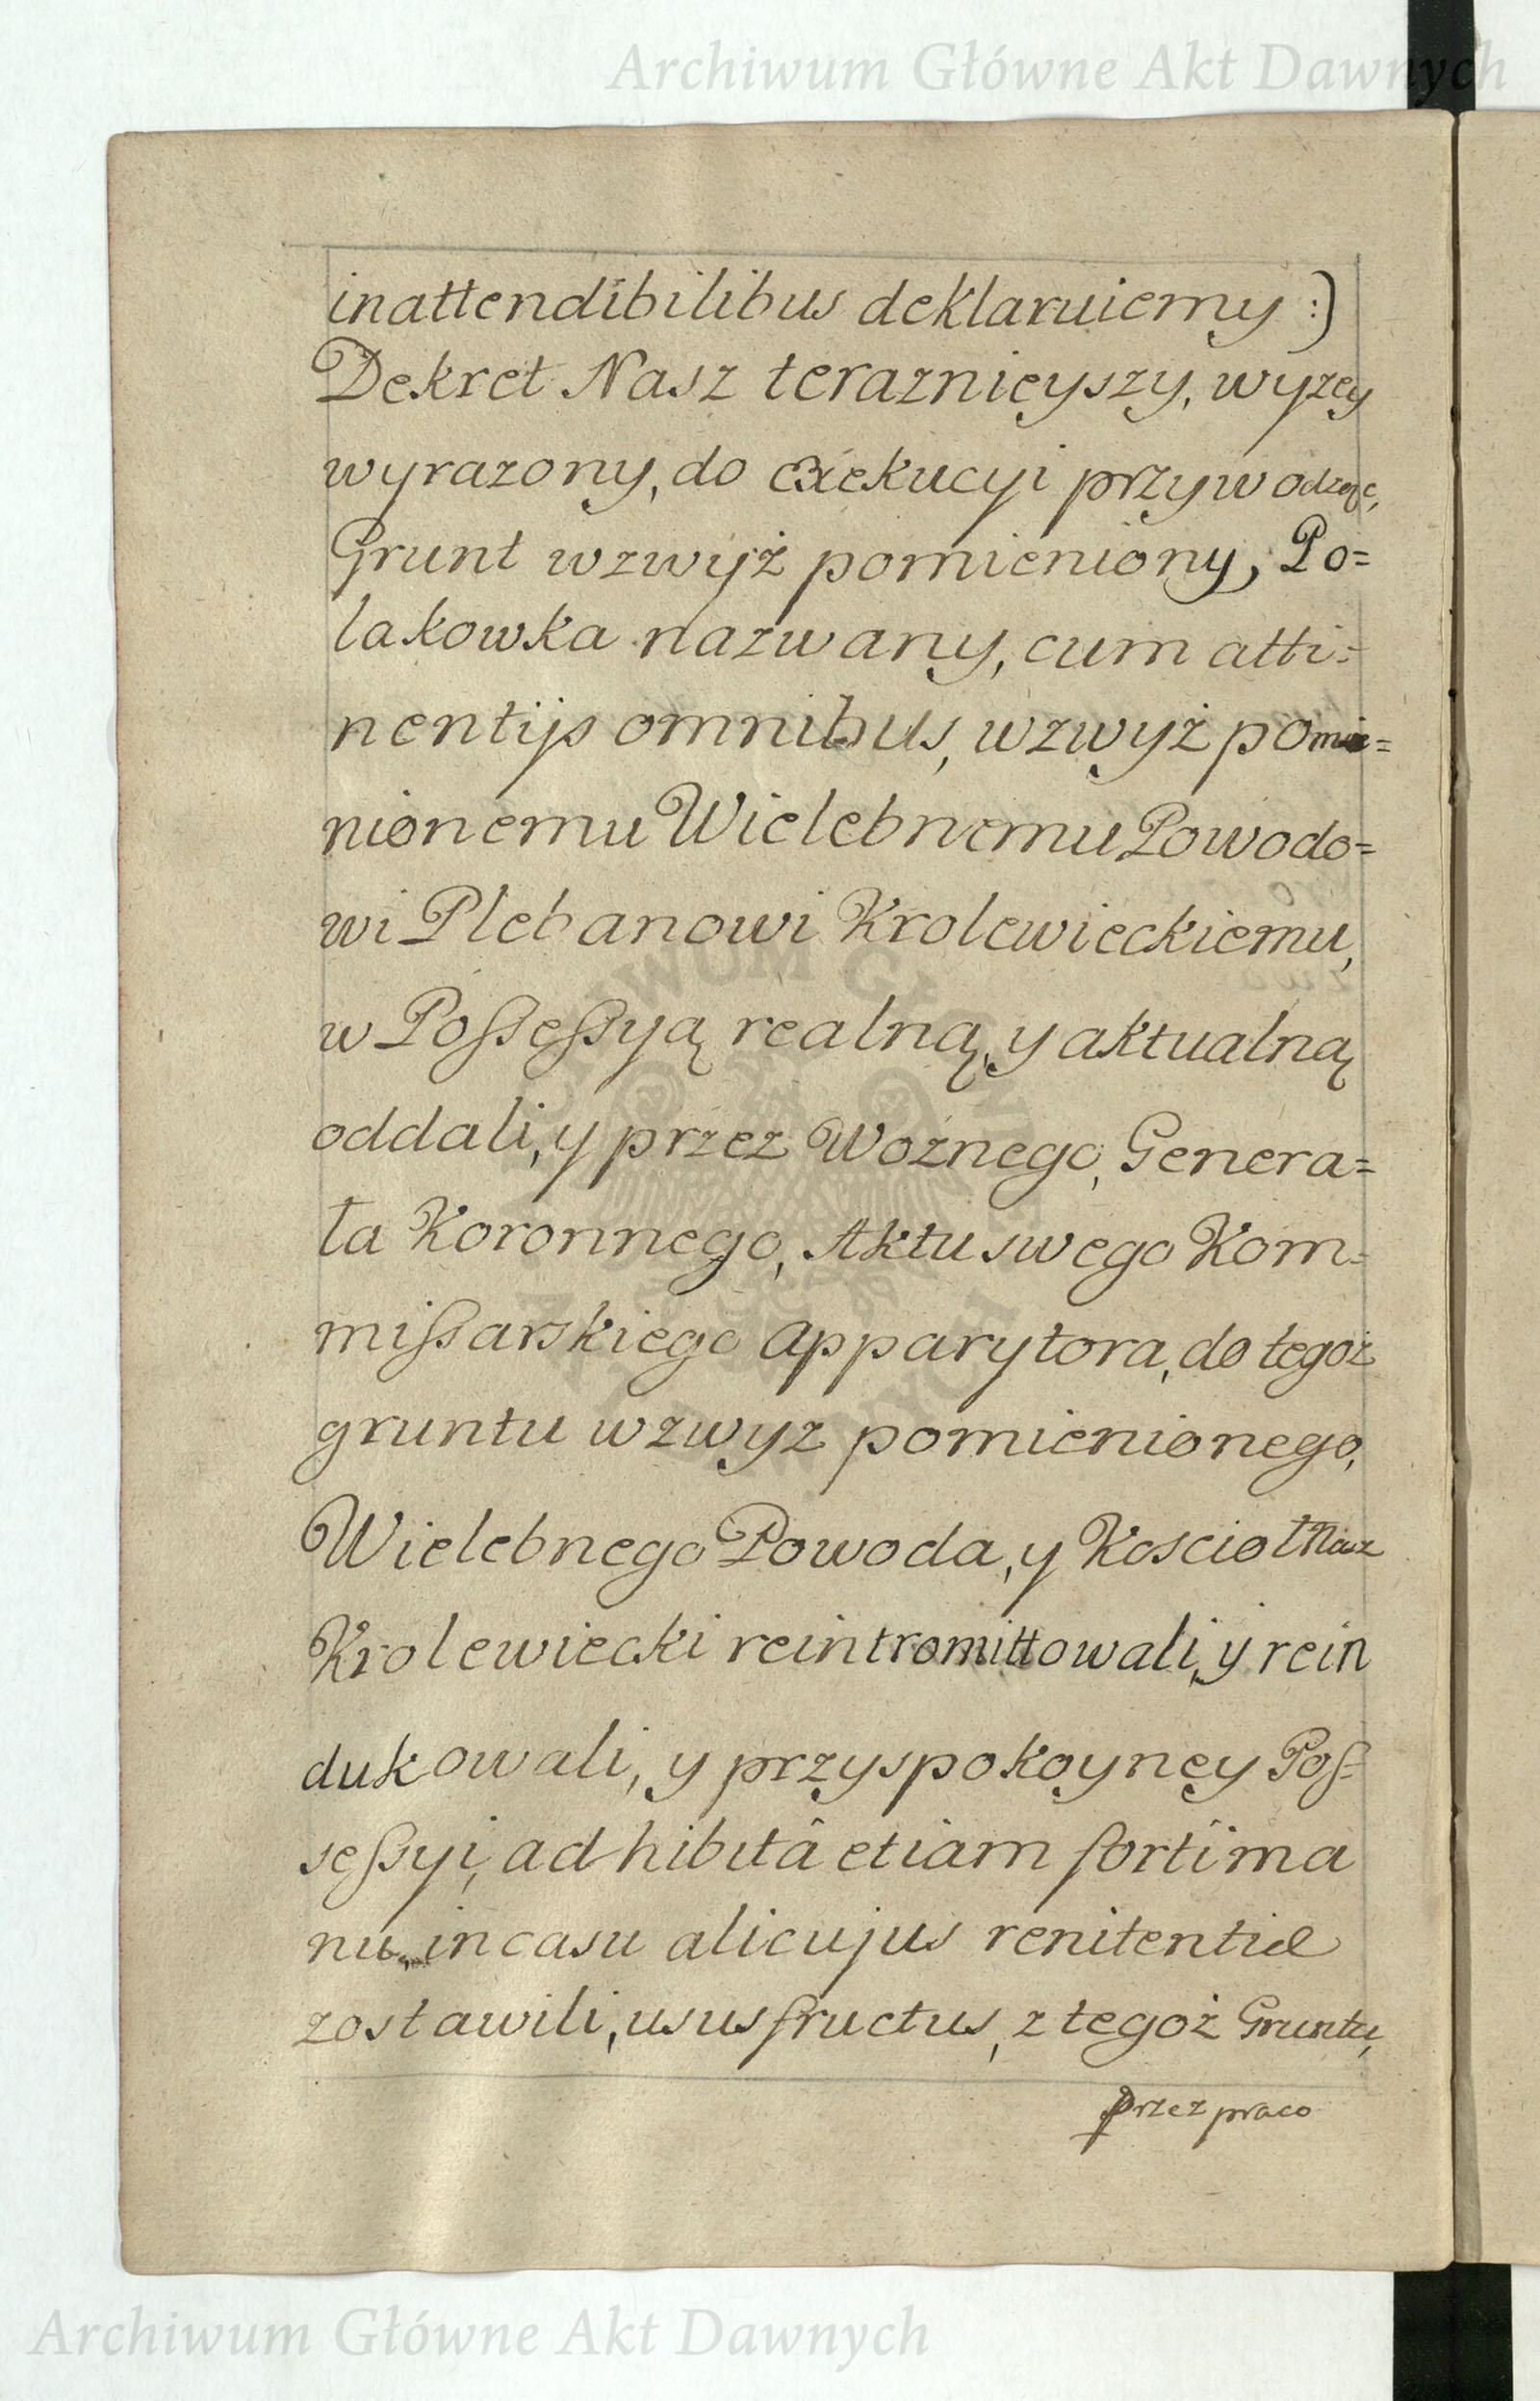 Archiwum Główne Akt Dawnych
inattendibilibus deklaruiemy :)
Dekret Nasz teraznieyszy, wyzey
wyrazony, do exekucyi przywodząc,
Grunt wzwyż pomieniony, Po=
lakowka nazwany, cum atti=
nentijs omnibus, wzwyż pomie=
nionemu Wielebnemu Powodo=
wi Plebanowi Krolewieckiemu,
w Possessyą realną, y aktualną
oddali, y przez Woźnego, Genera=
ła Koronnego, Aktu swego Kom=
missarskiego Apparytora, do tegoż
gruntu wzwyz pomienionego,
Wielebnego Powoda, y Koscioł Nasz
Krolewiecki reintromittowali, y rein
dukowali, y przy spokoyney Pos=
sessyi, adhibitâ etiam forti ma
nu, in casu alicujus renitentiæ
zostawili, ususfructus, z tegoż Gruntu,
przez praco
Archiwum Główne Akt Dawnych